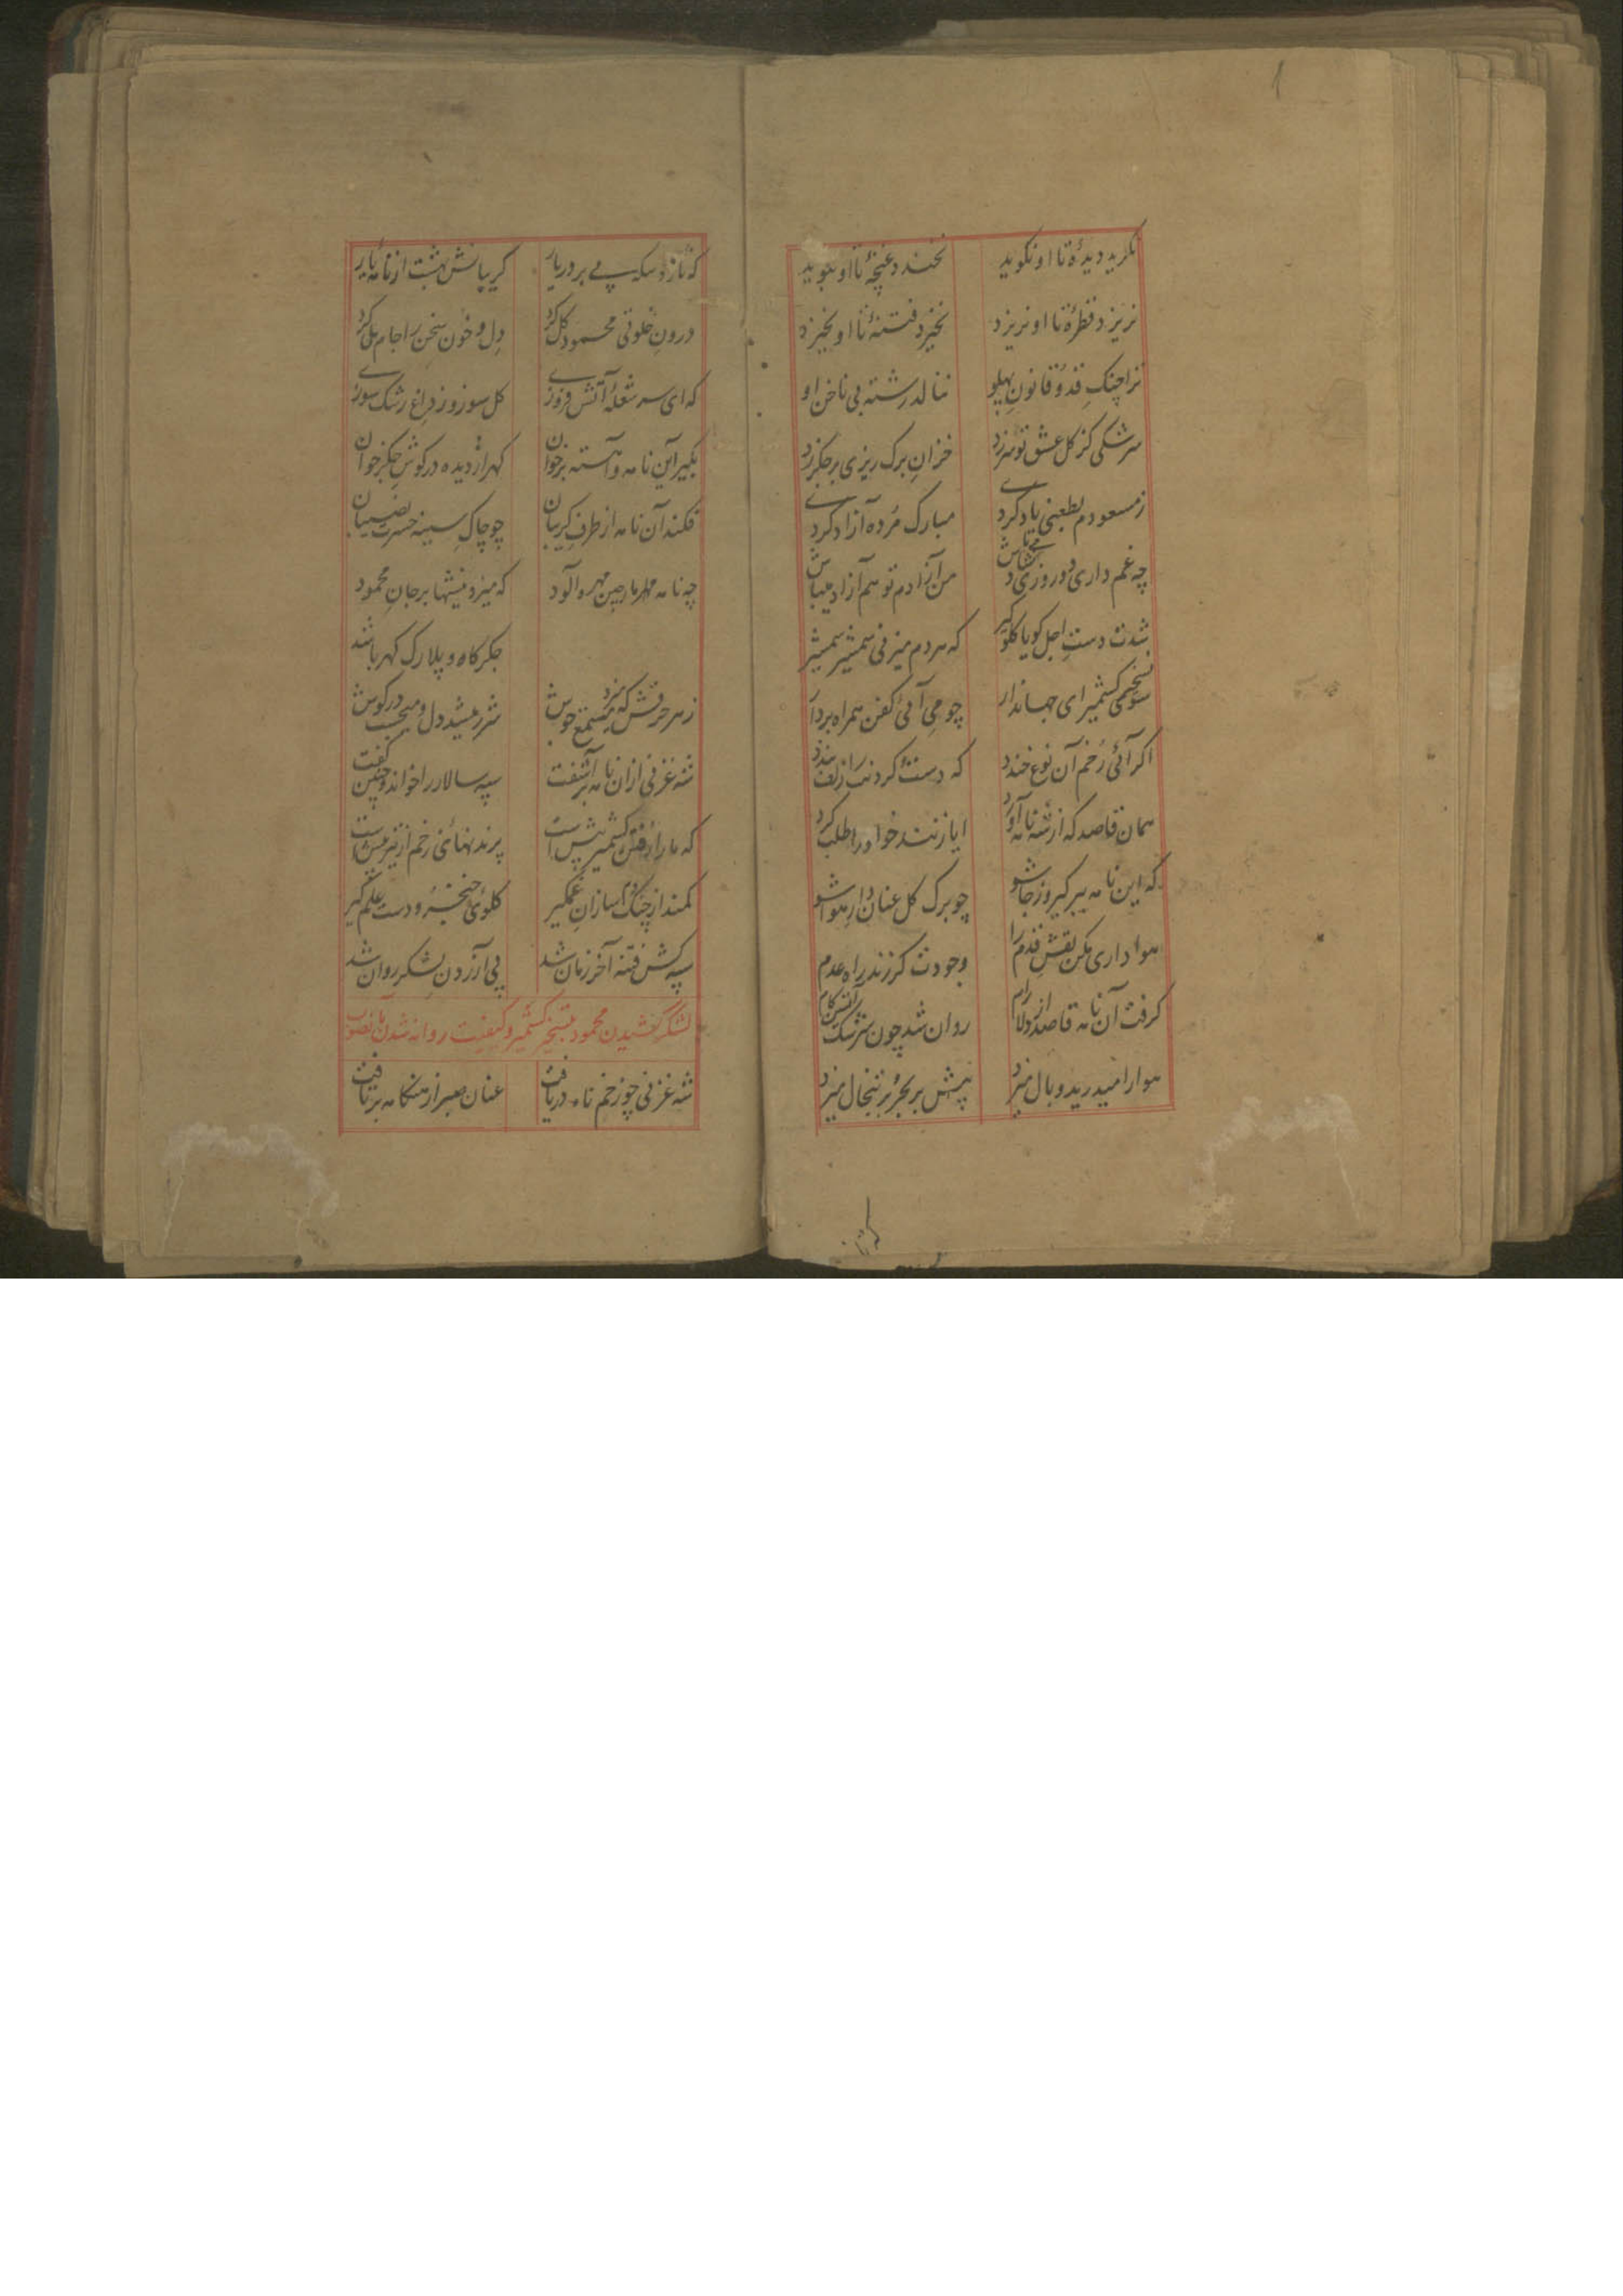 نگرید دیدهٔ تا او نگوید نخندد غنچهٔ تا او نبوید
نریزد قطرهٔ تا او نریزد نخیزد فتنهٔ تا او نخیزد
ترا چنک قد و قانون پهلو ننالد رشتهٔ بی ناخن او
سرشکی کز کل عشق تو سر زد خزان برک ریزی بر جکر زد
ز مسعودم بطعنی یاد کردی مبارک مرده آزاد کردی
چه غم داری دو روزی من آزادم تو هم آزاد میباش
شدت دست اجل کویا کلوکیر که هر دم میزنی شمشیر شمشیر
کشمیر ای جهاندار چو می آئی کفن همراه بردار
اکر آئی زخم آن نوع خندد که دست کردنت از بندد
همان قاصد که از شه نامه آورد ایاز نشد خوا و را طلب کرد
که این نامه ببر کیر و ز جا شو چو برک کل عنان دار هوا شو
هواداری مکن نقش قدم را وجودت کرزند راه عدم را
کرفت آن نامه قاصد از دلارام روان شد چون سرشک
هوا را میدرید و بال میزد تپش بر بحر و بر تبخال میزد
که ناز و سکه می بر دریار کریبانش بهشت از نامه یار
درون خلوتی محمود کل کرد دل و خون سخن را جام مل کرد
که ای سر شعلهٔ آتش فروزی کل سوز و ز داغ رشک سوزی
بکیر این نامه و آهسته برخوان کهر از دیده در کوش جکر خوان
فکند آن نامه از طرف کریبان چو چاک سینه حسرت نصیبان
چه نامه مهر مار چین مهر و آلود که میزد نیشها بر جان محمود
جکر کاه و پلارک کهربا شد
ز هر حرفش که میزد مستمع جوش شرر میشد دل و میجست در کوش
شه غزنی از ان نامه بر آشفت سپه سالار را خواند و چنین کفت
که ما را رفتن کشمیر پیش است پرند نهائی زخم از تیر بیش است
کمند از چنک دم سازان غمکیر کلوی خنجر و دست علم کیر
سپه کش فتنه آخر زمان شد پی آزردن لشکر روان شد
لشکر کشیدن محمود بتسخیر کشمیر و کیفیت روانه شدن بآنصوب
شه غزنی چو زخم نامه دریافت عنان صبر از هنکامه برتافت